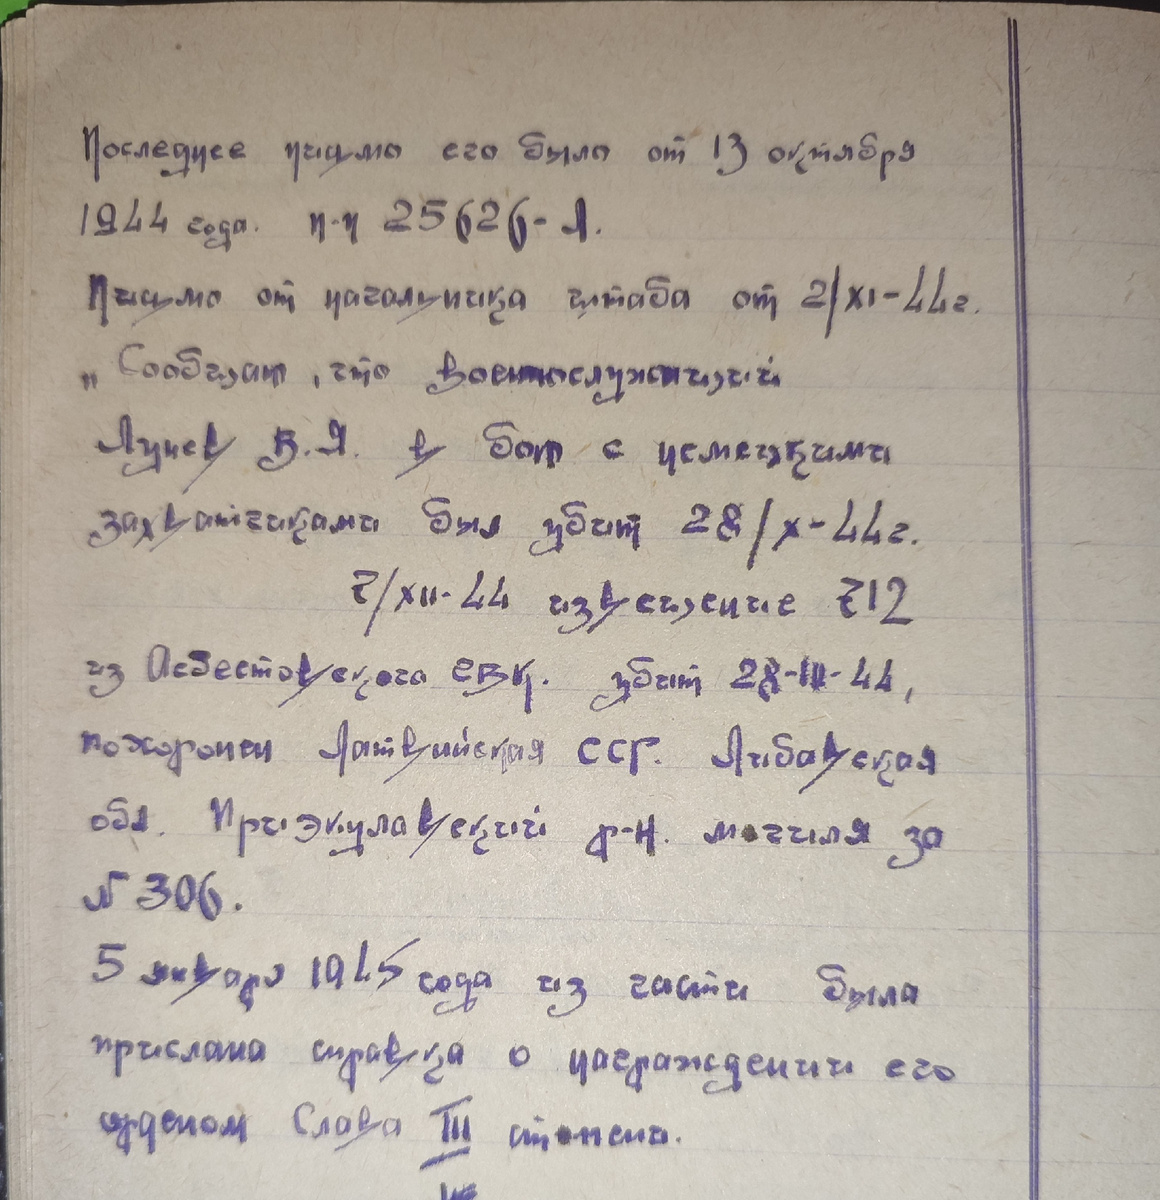 Последнее письмо его было от 13 октября
1944 года. п-п 25626-Я.
Письмо от начальника штаба от 2/XI-44г.
„Сообщаю, что военнослужащий
Лунев В.Я. в бою с немецкими
захватчиками был убит 28/X-44г.
7/XII-44 извещение 712
из Асбестовского ГВК. убит 28-III-44,
похоронен Латвийская ССР. Либавская
обл. Приэкулавский р-н. могиля за
№ 306.
5 января 1945 года из части была
прислана справка о награждении его
орденом Слава III степени.